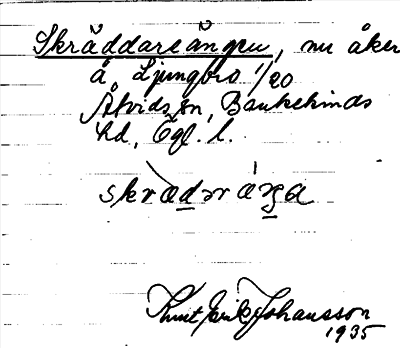 Skräddareängen, nu åker
å Ljungbro 1/20
Åtvids sn, Bankekinds
hd, Ögl. l.
skrædər æŋa
Knut Erik Johansson
1935